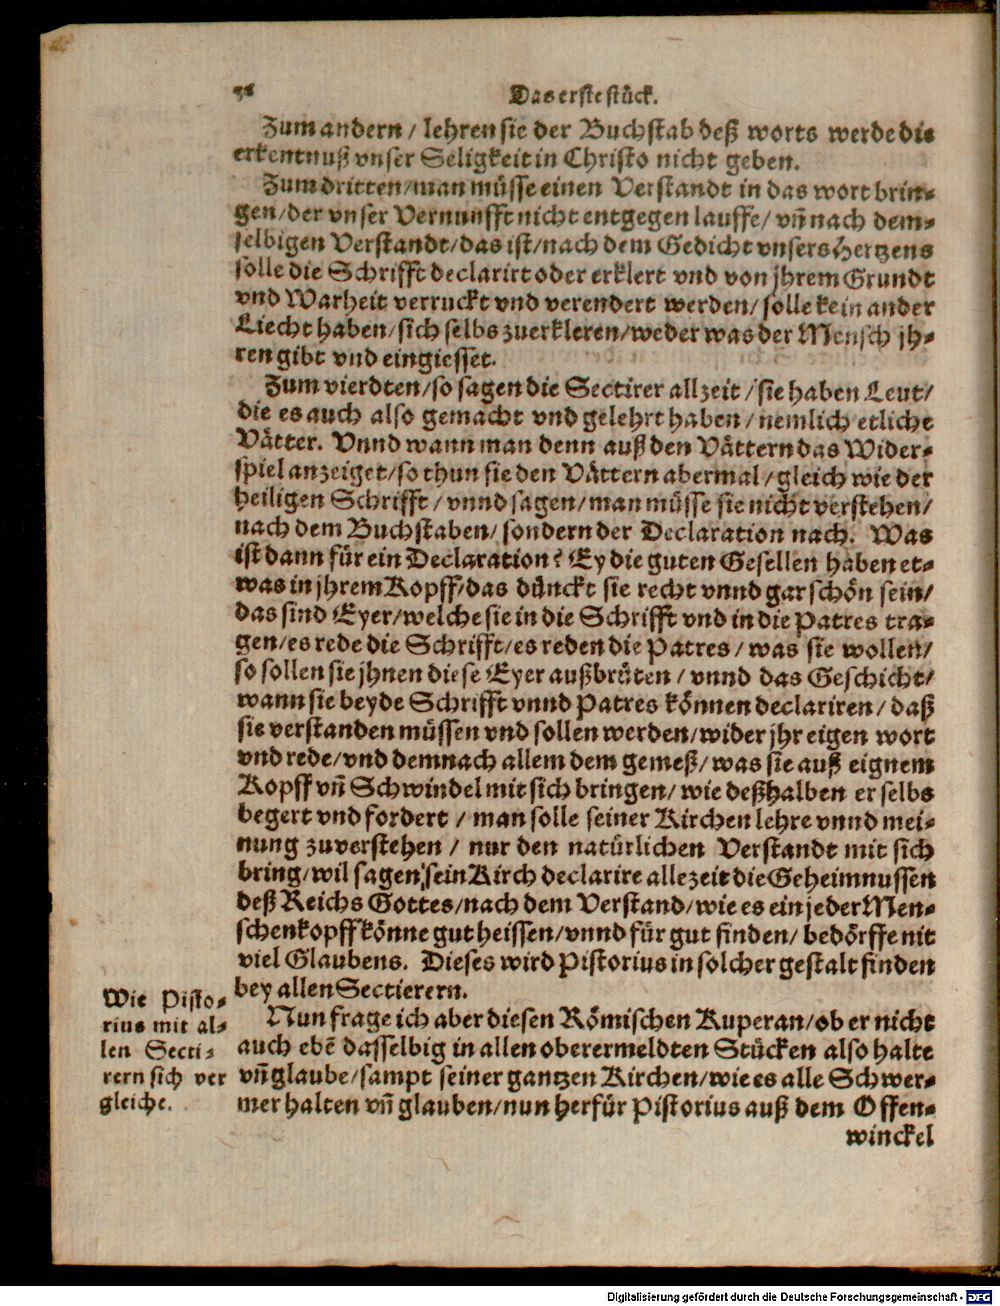 56
Das erste stück.
Zum andern / lehren sie der Buchstab deß worts werde die
erkentnuß vnser Seligkeit in Christo nicht geben.
Zum dritten/man müsse einen Verstandt in das wort brin-
gen/der vnser Vernunfft nicht entgegen lauffe/ vñ nach dem-
selbigen Verstandt/das ist/nach dem Gedicht vnsers Hertzens
solle die Schrifft declarirt oder erklert vnd von jhrem Grundt
vnd Warheit verruckt vnd verendert werden/ solle kein ander
Liecht haben/sich selbs zuerkleren/weder was der Mensch jh-
ren gibt vnd eingiesset.
Zum vierdten/so sagen die Sectirer allzeit /sie haben Leut/
die es auch also gemacht vnd gelehrt haben/ nemlich etliche
Vätter. Vnnd wann man denn auß den Vättern das Wider-
spiel anzeiget/so thun sie den Vättern abermal/ gleich wie der
heiligen Schrifft / vnnd sagen/man müsse sie nicht verstehen/
nach dem Buchstaben/ sondern der Declaration nach. Was
ist dann für ein Declaration? Ey die guten Gesellen haben et-
was in jhrem Kopff/das dünckt sie recht vnnd gar schön sein/
das sind Eyer/welche sie in die Schrifft vnd in die Patres tra-
gen/es rede die Schrifft/es reden die Patres / was sie wollen/
so sollen sie jhnen diese Eyer außbrüten / vnnd das Geschicht/
wann sie beyde Schrifft vnnd Patres können declariren/ daß
sie verstanden müssen vnd sollen werden/wider jhr eigen wort
vnd rede/vnd demnach allem dem gemeß/ was sie auß eignem
Kopff vñ Schwindel mit sich bringen/ wie deßhalben er selbs
begert vnd fordert / man solle seiner Kirchen lehre vnnd mei-
nung zuverstehen / nur den natürlichen Verstandt mit sich
bring/wil sagen/sein Kirch declarire allezeit die Geheimnussen
deß Reichs Gottes/nach dem Verstand/wie es ein jeder Men-
schenkopff könne gut heissen/vnnd für gut finden/ bedörffe nit
viel Glaubens. Dieses wird Pistorius in solcher gestalt finden
bey allen Sectierern.
Wie Pisto-
rius mit al-
len Secti-
rern sich ver
gleiche.
Nun frage ich aber diesen Römischen Kuperan/ob er nicht
auch ebē dasselbig in allen oberermeldten Stücken also halte
vñ glaube/sampt seiner gantzen Kirchen/wie es alle Schwer-
mer halten vñ glauben/nun herfür Pistorius auß dem Offen-
winckel
Digitalisierung gefördert durch die Deutsche Forschungsgemeinschaft - DFG